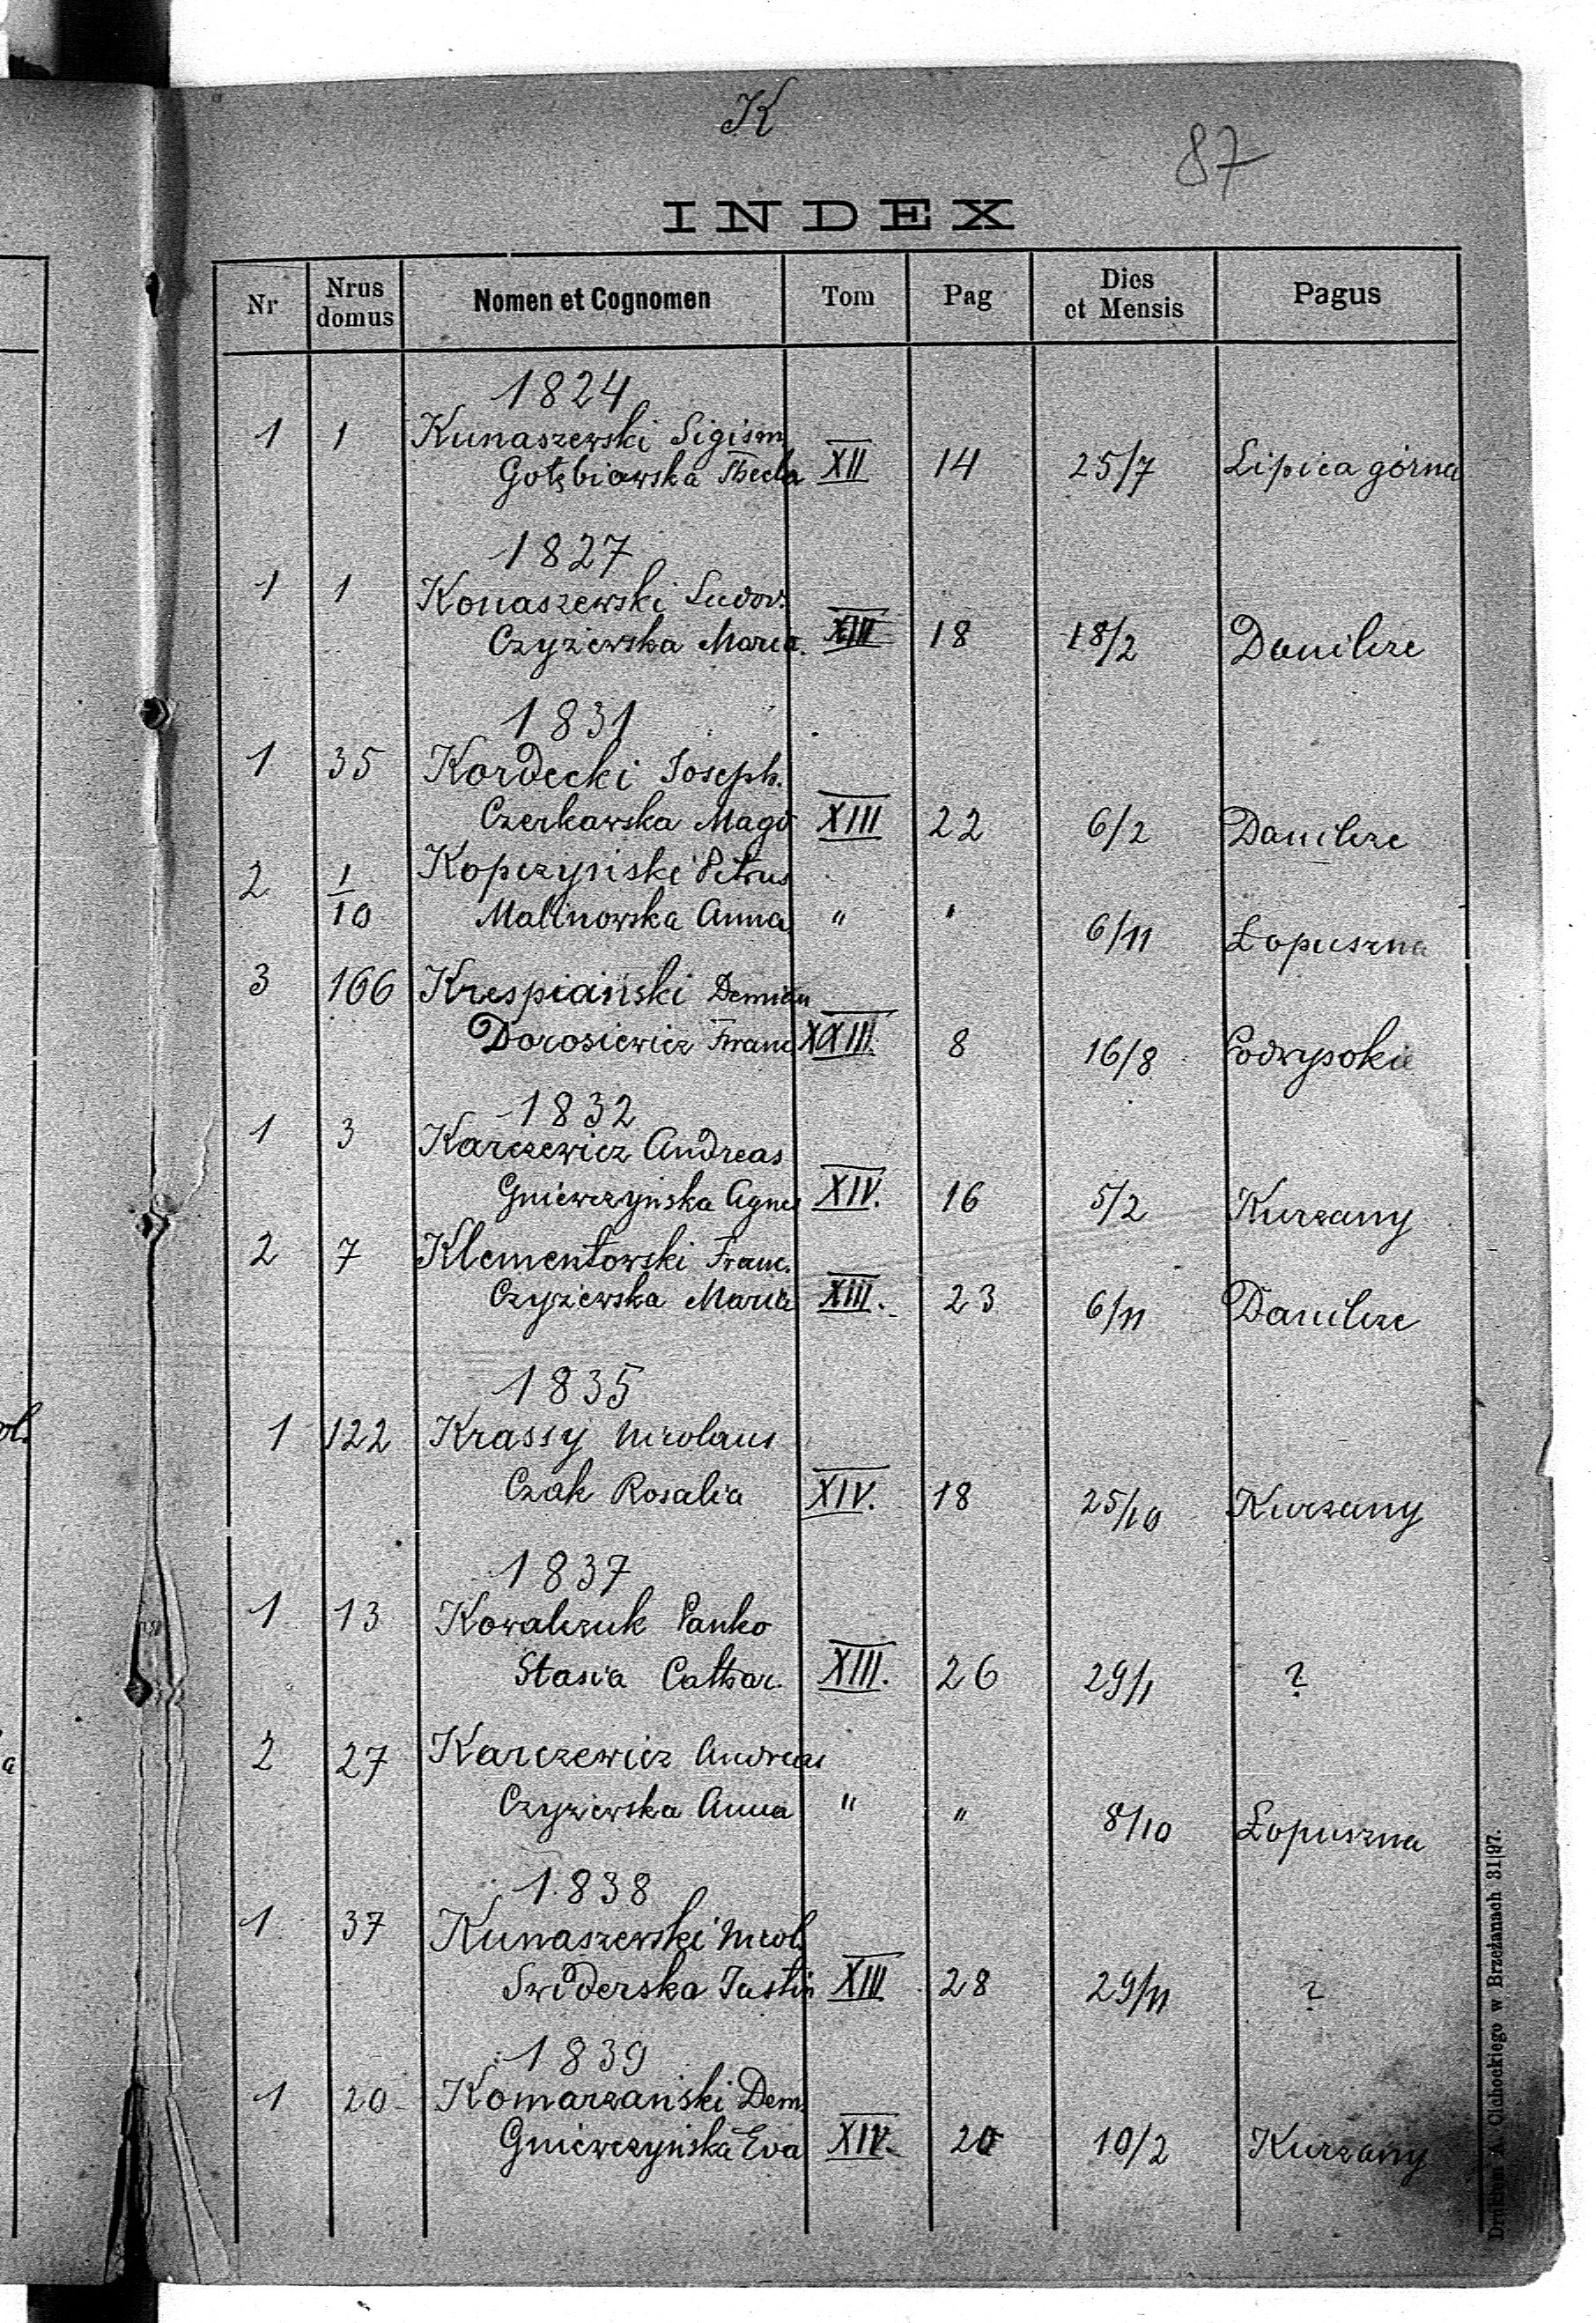 K
87
INDEX
Nr Nrus domus Nomen et Cognomen Tom Pag Dies et Mensis Pagus
1824
1 1 Kunaszewski Sigism
Gołębiowska Thecla XII 14 25/7 Lipica górna
1827
1 1 Konaszewski Ludov.
Czyżewska Maria. XIII 18 18/2 Danilcze
1831
1 35 Kordecki Joseph.
Czerkawska Magd XIII 22 6/2 Danilcze
2 1/10 Kopczyński Petrus
Malinowska Anna " " 6/11 Łopuszna
3 166 Krespiański Demian
Dorosiewicz Franc XXIII. 8 16/8 Podwysokie
1832
1 3 Karczewicz Andreas
Gniewczyńska Agnes XIV. 16 5/2 Kurzany
2 7 Klementowski Franc.
Czyżewska Maria XIII. 23 6/11 Danilcze
1835
1 122 Krassy Nicolaus
Czak Rosalia XIV. 18 25/10 Kurzany
1837
1 13 Kowalczuk Panko
Stasia Cathar. XIII. 26 29/1 ?
2 27 Karczewicz Andreas
Czyżewska Anna " " 8/10 Łopuszna
1838
1 37 Kunaszewski Nicol.
Swiderska Justin XIII 28 29/11 ?
1839
1 20 Komarzański Dem.
Gniewczyńska Eva XIV. 20 10/2 Kurzany
Drukiem A. Olchockiego w Brzeżanach 31|97.
ol.
a